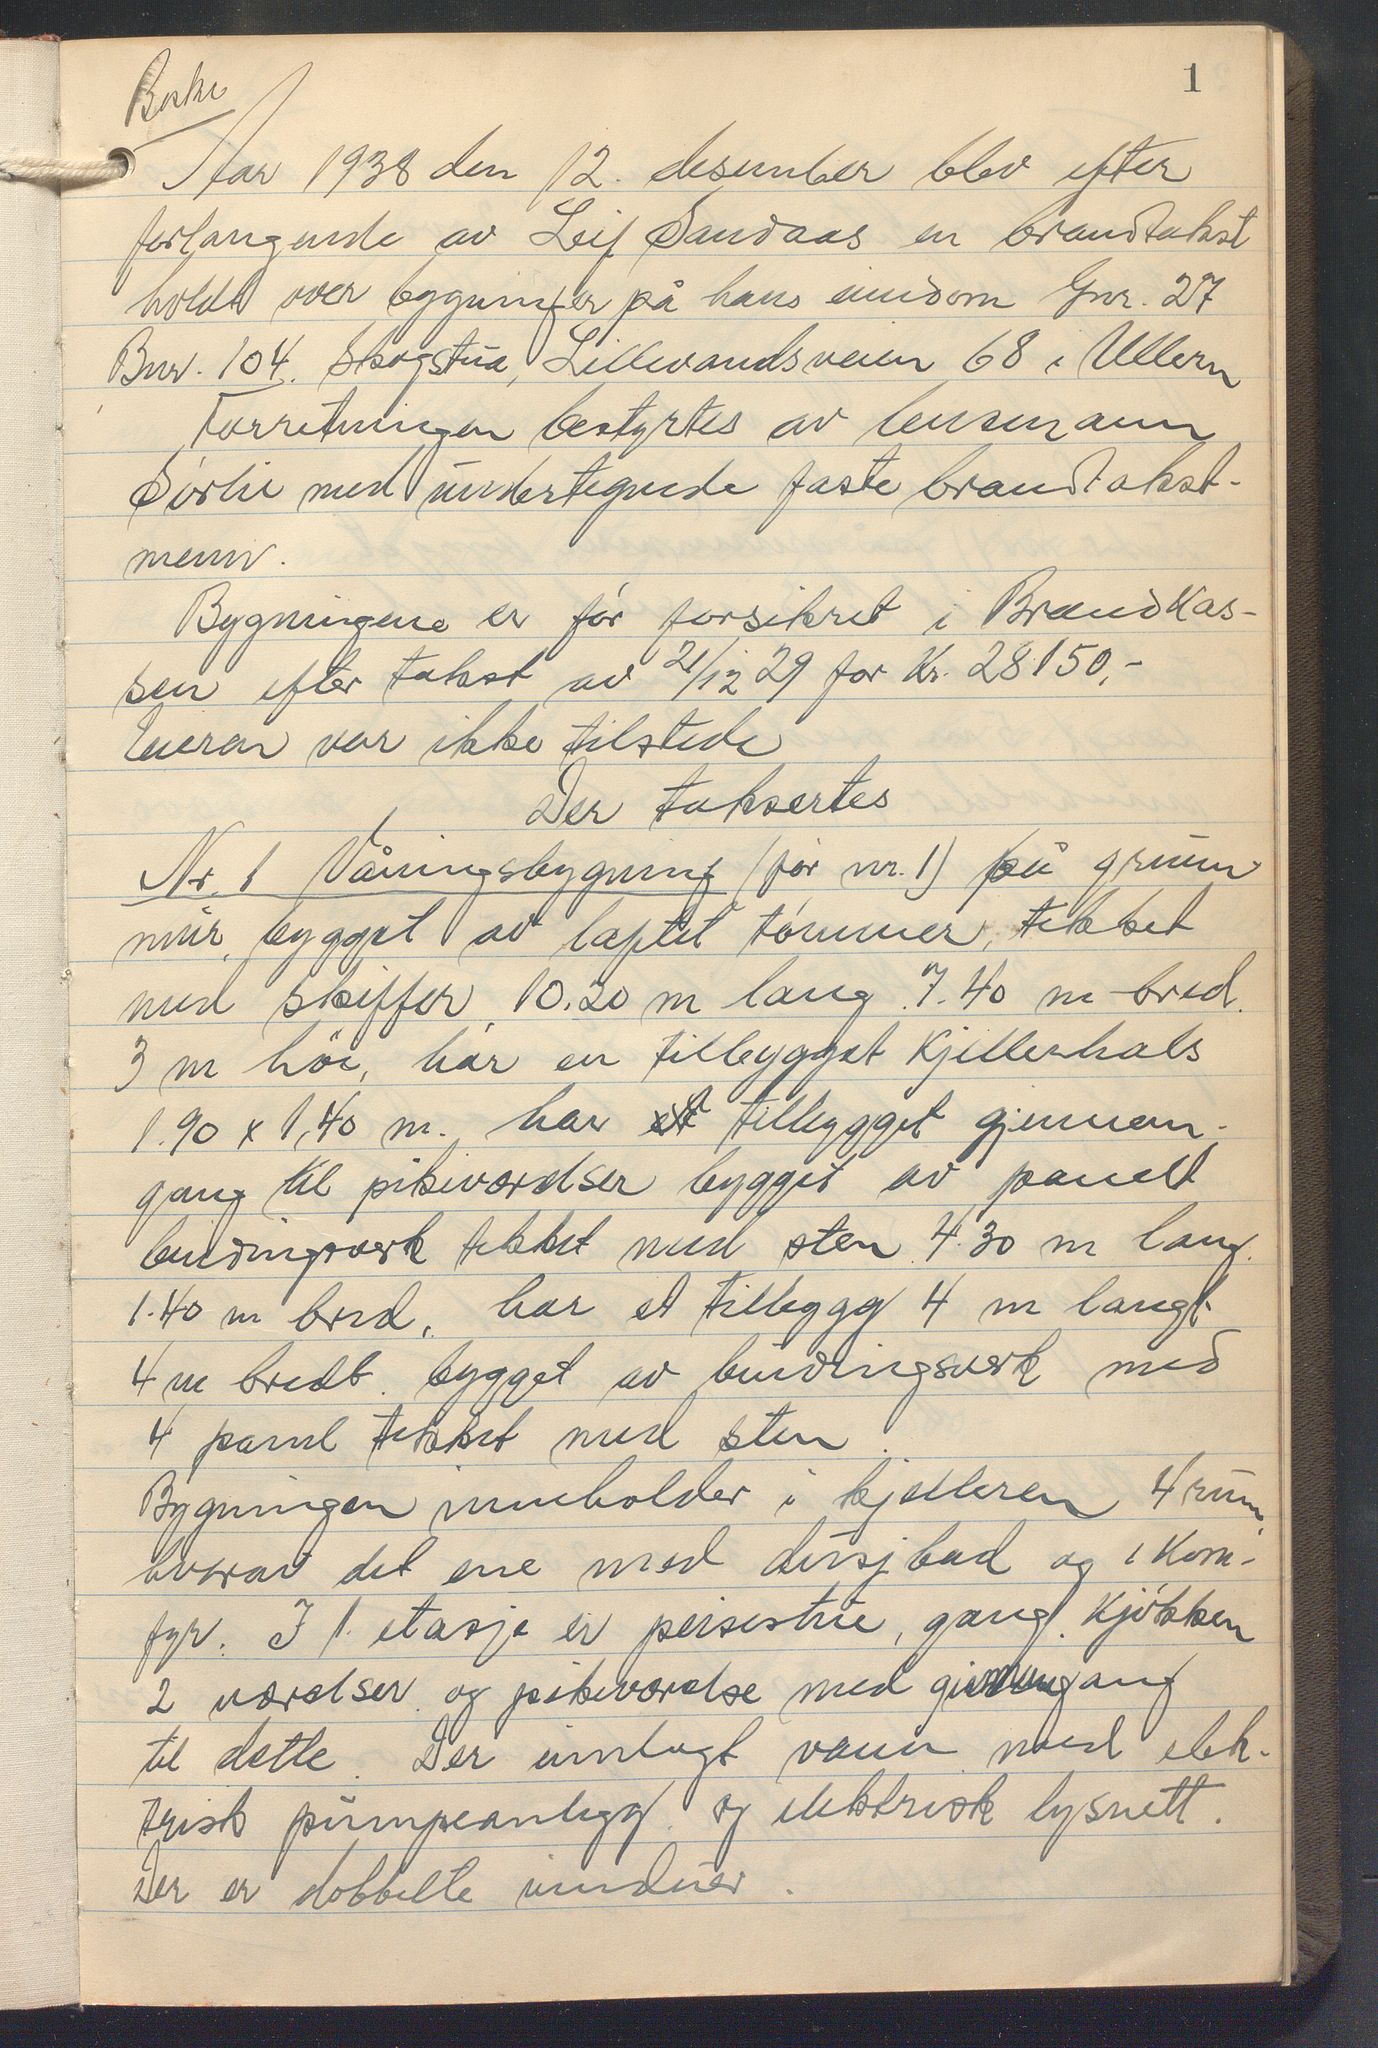 1
Aar 1938 den 12. desember blev efter
forlangende av Leif Sandaas en brandtakst
holdt over bygninger på hans eiendom Gnr. 27
Bnr. 104. Skogstua, Lillevandsveien 68 i Ullern
Forretningen bestyrtes av lensmann
Sörlie med undertegnede faste brandtakst-
menn.
Bygningene er för forsikret i Brandkas-
sen efter takst av 21/12 29 for Kr. 28150,-
Eieren var ikke tilstede
Der taksertes
Nr. 1 Våningsbygning (för nr. 1) på grunn
mur, bygget av laftet tömmer, tekket
med skiffer, 10.20 m lang 7.40 m bred.
3 m höi, har en tilbygget kjellerhals
1.90 x 1,40 m. har tilbygget gjennem-
gang til pikeværelser bygget av panelt
bindingsverk tekket med sten 4.30 m lang.
1.40 m bred, har et tilbygg 4 m langt
4 m bredt. bygget av bindingsverk med
4 panel tekket med sten.
Bygningen inneholder i kjelleren 4 rum,
hvorav det ene med dusjbad og 1 kom-
fyr. I 1. etasje er peisestue, gang. kjökken
2 værelser og pikeværelse med gjennemgang
til dette. Der innlagt vann med elek-
trisk pumpeanlegg og elektrisk lysnett.
Der er dobbelte vinduer.